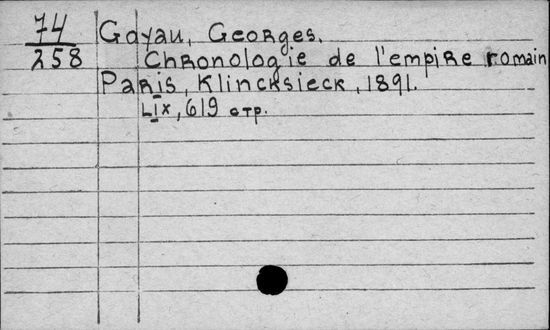 74
258
Goyau, Georges.
Chronologie de l'empire romain
Paris, Klincksieck, 1891.
LIX, 619 стр.